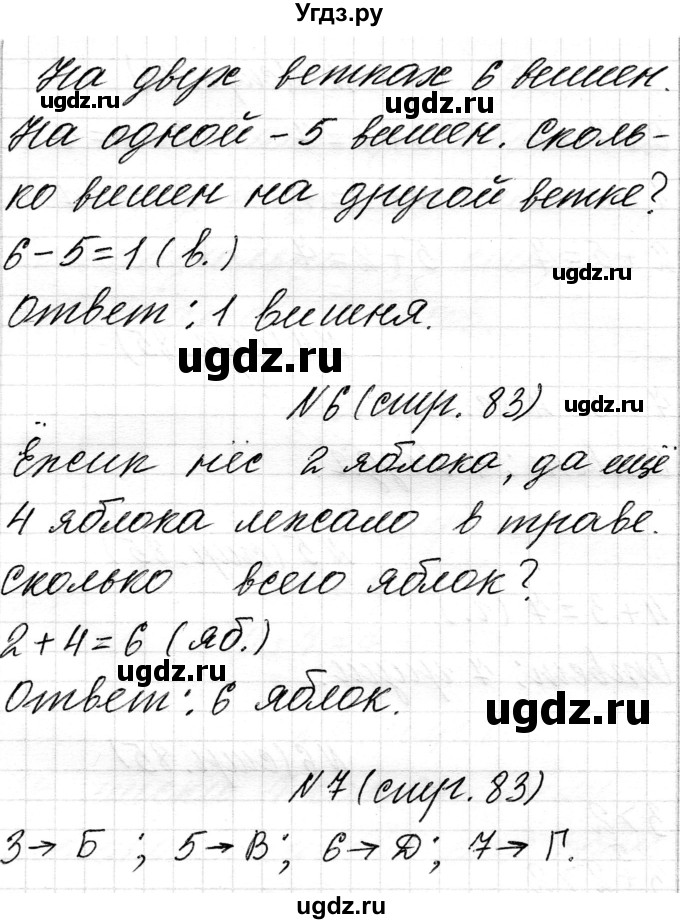 Угдз.ру
На двух ветках 6 вишен.
На одной - 5 вишен. Сколь-
ко вишен на другой ветке?
6 - 5 = 1 ( в. )
Ответ : 1 вишня.
N 6 (стр. 83)
Ёжик нёс 2 яблока, да ещё
4 яблока лежало в траве.
Сколько всего яблок?
2 + 4 = 6 ( яб. )
Ответ : 6 яблок.
N 7 (стр. 83)
3 → Б ; 5 → В ; 6 → Д ; 7 → Г.
ugdz.ru
ugdz.ru
ugdz.ru
ugdz.ru
ugdz.ru
ugdz.ru
ugdz.ru
ugdz.ru